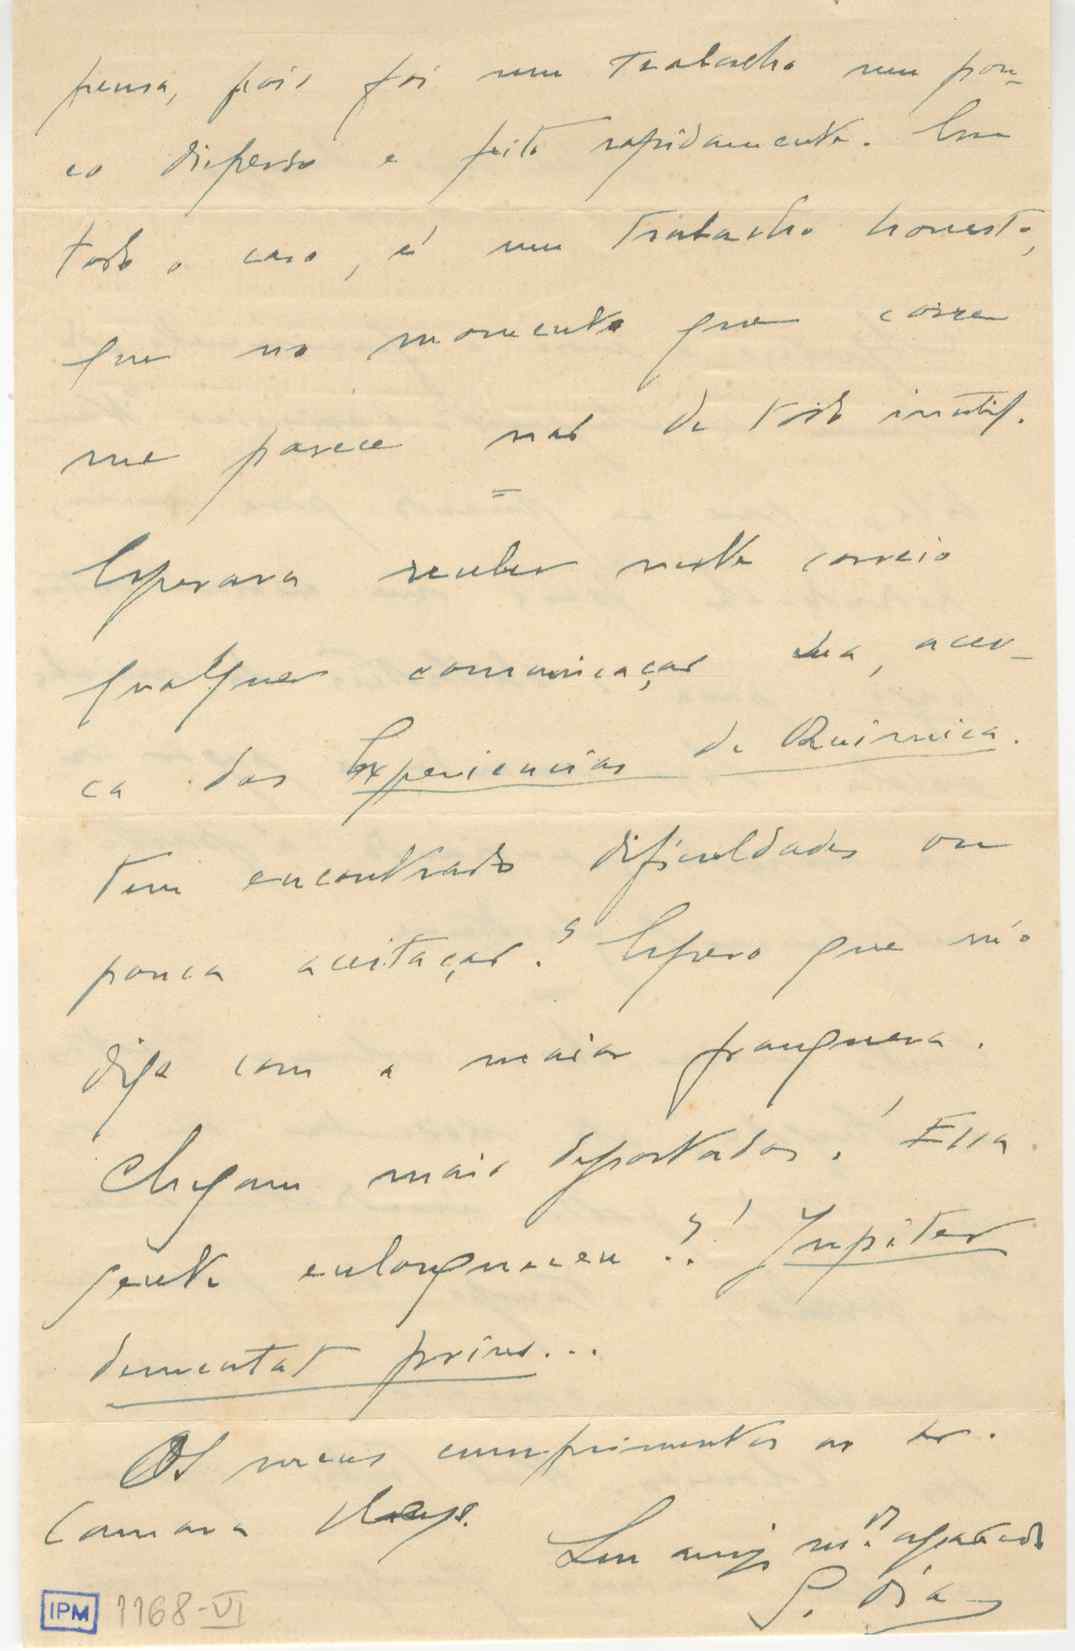 pensa, pois foi um trabalho um pou-
co disperso e feito rapidamente. Em
todo o caso, é um trabalho honesto,
que no momento que corre
me parece não de todo inutil.
=
Esperava receber neste correio
qualquer comunicação sua, acer-
ca das Experiencias de Quimica.
Tem encontrado dificuldades ou
pouca aceitação? Espero que m'o
diga com a maior franqueza.
Chegam mais deportados! Essa
gente enlouqueceu?! Jupiter
dementat prius...
Os meus cumprimentos ao sr.
Camara Reys.
Seu amigo m.to
IPM 1168-VI